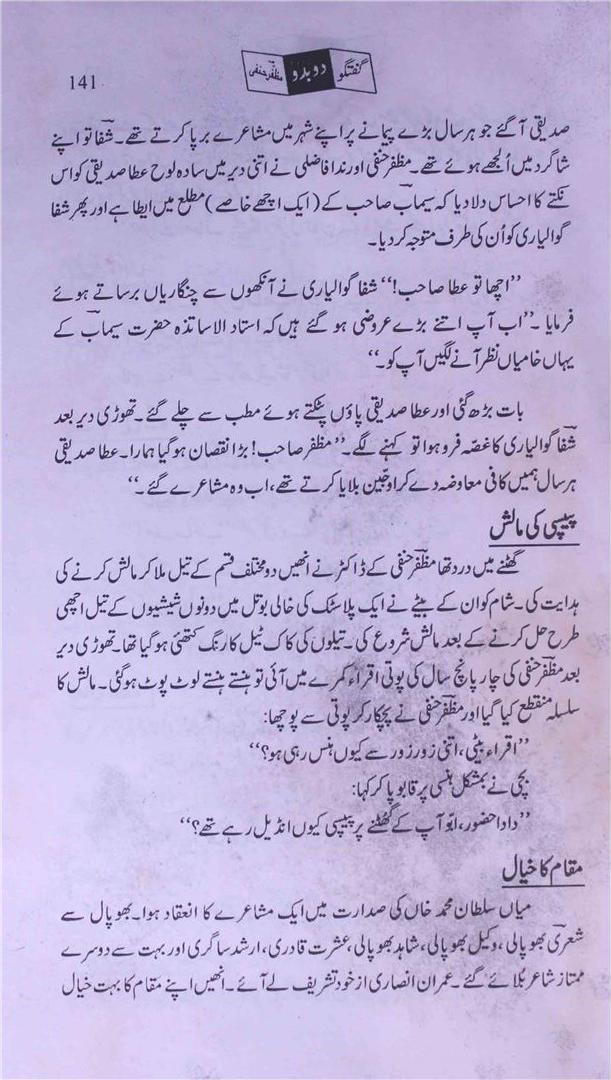 141
گفتگو دوبدو مظفر حنفی
صدیقی آ گئے جو ہر سال بڑے پیمانے پر اپنے شہر میں مشاعرے برپا کرتے تھے۔ شفاؔ تو اپنے
شاگرد میں اُلجھے ہوئے تھے۔ مظفر حنفی اور ندا فاضلی نے اتنی دیر میں سادہ لوح عطا صدیقی کو اس
نکتے کا احساس دلا دیا کہ سیمابؔ صاحب کے (ایک اچھے خاصے) مطلع میں ایطا ہے اور پھر شفا
گوالیاری کو اُن کی طرف متوجہ کر دیا۔
’’اچھا تو عطا صاحب!‘‘ شفا گوالیاری نے آنکھوں سے چنگاریاں برساتے ہوئے
فرمایا۔ ’’اب آپ اتنے بڑے عروضی ہو گئے ہیں کہ استاد الاساتذہ حضرت سیمابؔ کے
یہاں خامیاں نظر آنے لگیں آپ کو۔‘‘
بات بڑھ گئی اور عطا صدیقی پاؤں پٹکتے ہوئے مطب سے چلے گئے۔ تھوڑی دیر بعد
شفاؔ گوالیاری کا غصّہ فرو ہوا تو کہنے لگے۔ ’’مظفر صاحب! بڑا نقصان ہو گیا ہمارا۔ عطا صدیقی
ہر سال ہمیں کافی معاوضہ دے کر اوجّین بلایا کرتے تھے، اب وہ مشاعرے گئے۔‘‘
پیپسی کی مالش
گھٹنے میں درد تھا مظفرؔ حنفی کے ڈاکٹر نے انھیں دو مختلف قسم کے تیل ملا کر مالش کرنے کی
ہدایت کی۔ شام کو ان کے بیٹے نے ایک پلاسٹک کی خالی بوتل میں دونوں شیشیوں کے تیل اچھی
طرح حل کرنے کے بعد مالش شروع کی۔ تیلوں کی کاک ٹیل کا رنگ کتھئی ہو گیا تھا۔ تھوڑی دیر
بعد مظفرؔ حنفی کی چار پانچ سال کی پوتی اقراء کمرے میں آئی تو ہنستے ہنستے لوٹ پوٹ ہو گئی۔ مالش کا
سلسلہ منقطع کیا گیا اور مظفرؔ حنفی نے پچکار کر پوتی سے پوچھا:
’’اقراء بیٹی، اتنی زور زور سے کیوں ہنس رہی ہو؟‘‘
بچی نے بمشکل ہنسی پر قابو پا کر کہا:
’’دادا حضور، ابّو آپ کے گھٹنے پر پیپسی کیوں انڈیل رہے تھے؟‘‘
مقام کا خیال
میاں سلطان محمد خاں کی صدارت میں ایک مشاعرے کا انعقاد ہوا۔ بھوپال سے
شعریؔ بھوپالی، وکیل بھوپالی، شاہد بھوپالی، عشرت قادری، ارشد ساگری اور بہت سے دوسرے
ممتاز شاعر بُلائے گئے۔ عمران انصاری از خود تشریف لے آئے۔ انھیں اپنے مقام کا بہت خیال